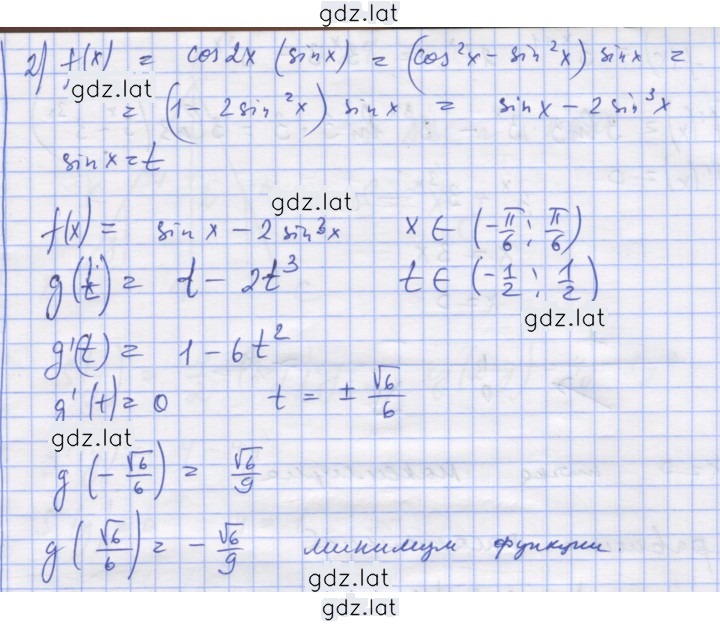 gdz.lat
2) f(x) = cos2x (sinx) = (cos²x − sin²x) sinx =
gdz.lat
= (1 − 2sin²x) sinx = sinx − 2sin³x
sinx = t
gdz.lat
f(x) = sinx − 2sin³x x ∈ (−π/6; π/6)
g(t) = t − 2t³ t ∈ (−1/2; 1/2)
gdz.lat
g'(t) = 1 − 6t²
g'(t) = 0 t = ± √6/6
gdz.lat
g(−√6/6) = √6/9
g(√6/6) = −√6/9 минимум функции.
gdz.lat
gdz.lat